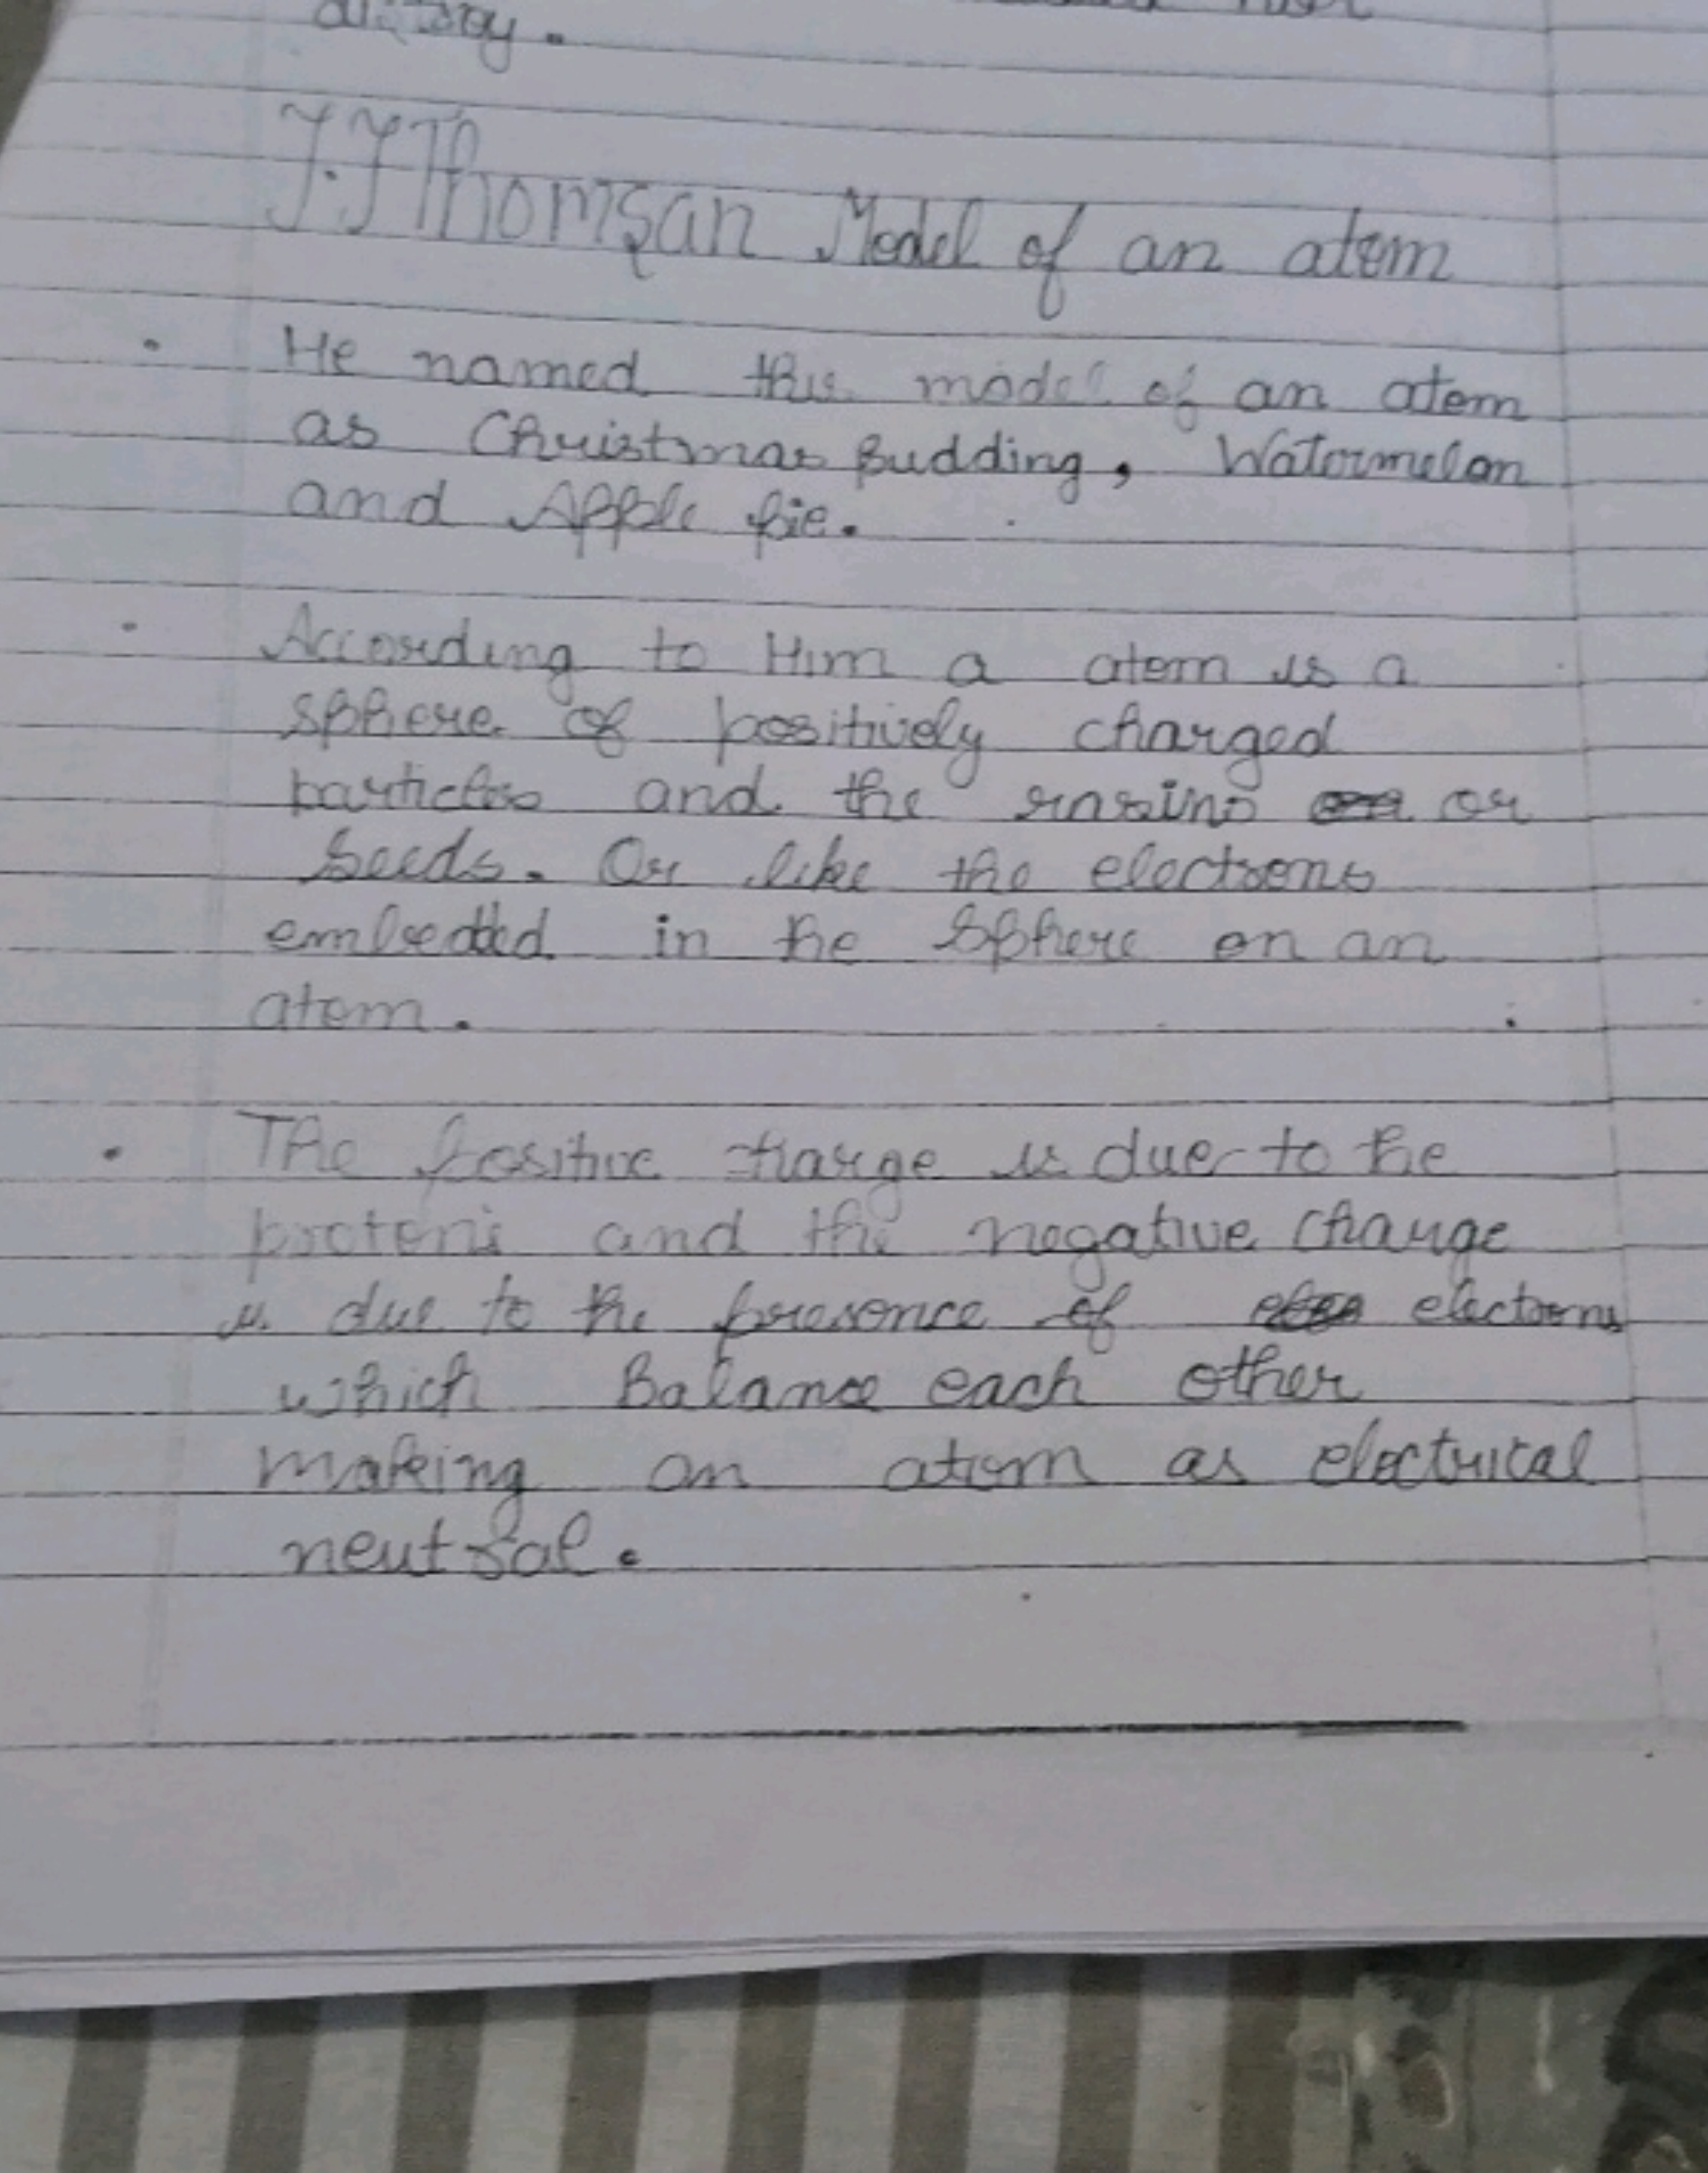 J.J Thomsan Model of an atom
• He named this model of an atom
as Christmas Budding, Watormelon
and Apple pie.
• According to Him a atom is a
sphere of positively charged
particles and the rasins or
seeds. Or like the electrons
embedded in the sphere on an
atom.
• The positive charge is due to the
protons and the negative charge
is due to the presence of electrons
which Balance each other
making an atom as electrical
neutral.